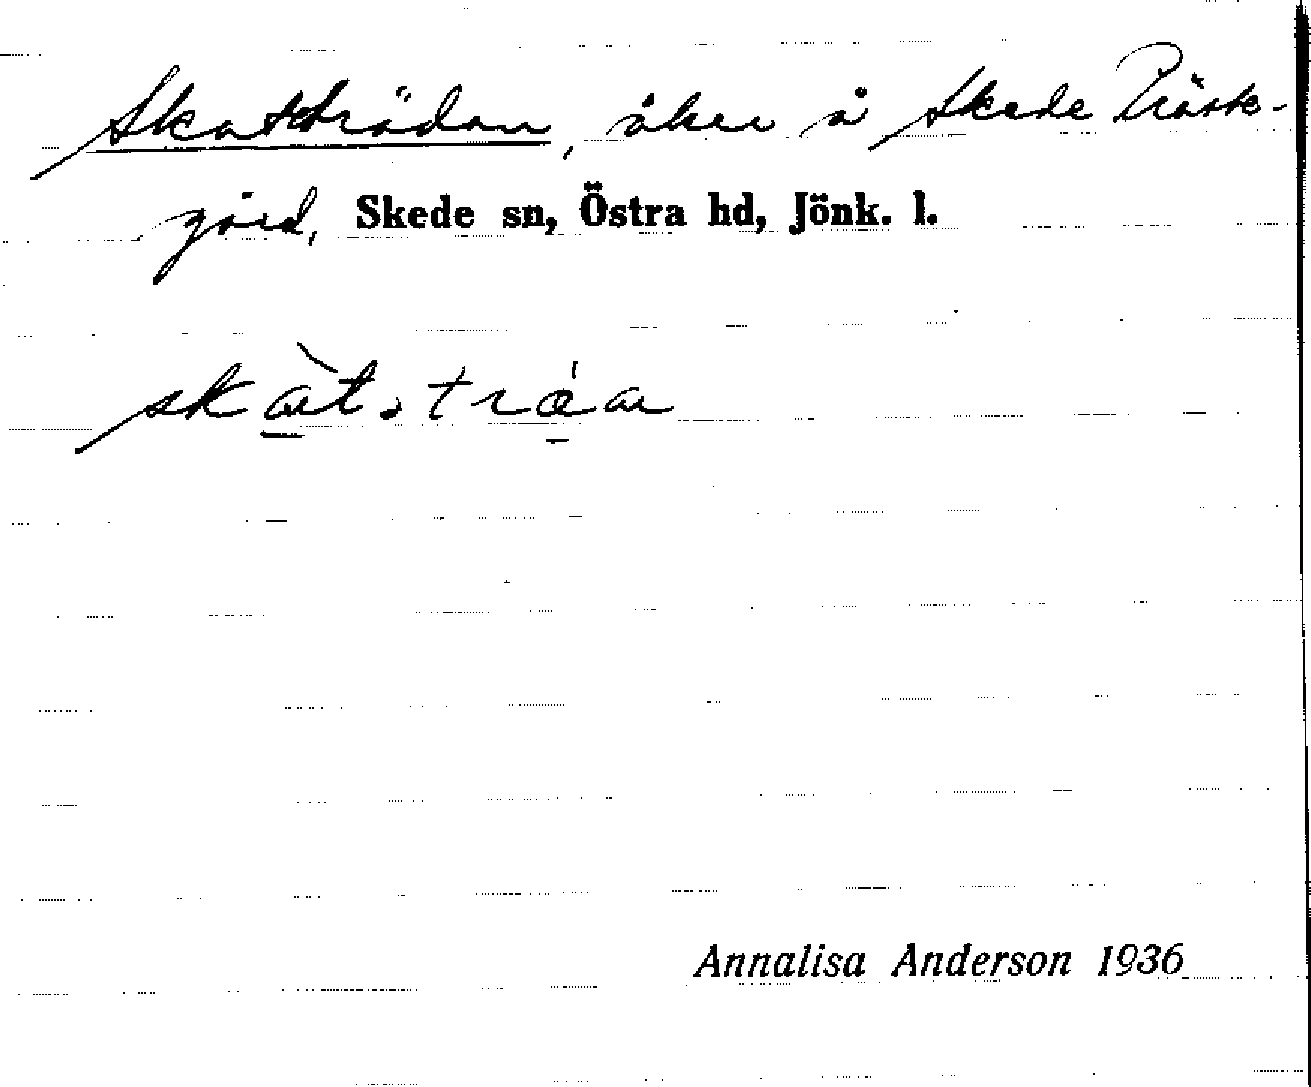 Skatträdan, åker å Skede Präst-
gård, Skede sn, Östra hd, Jönk. l.
Annalisa Anderson 1936